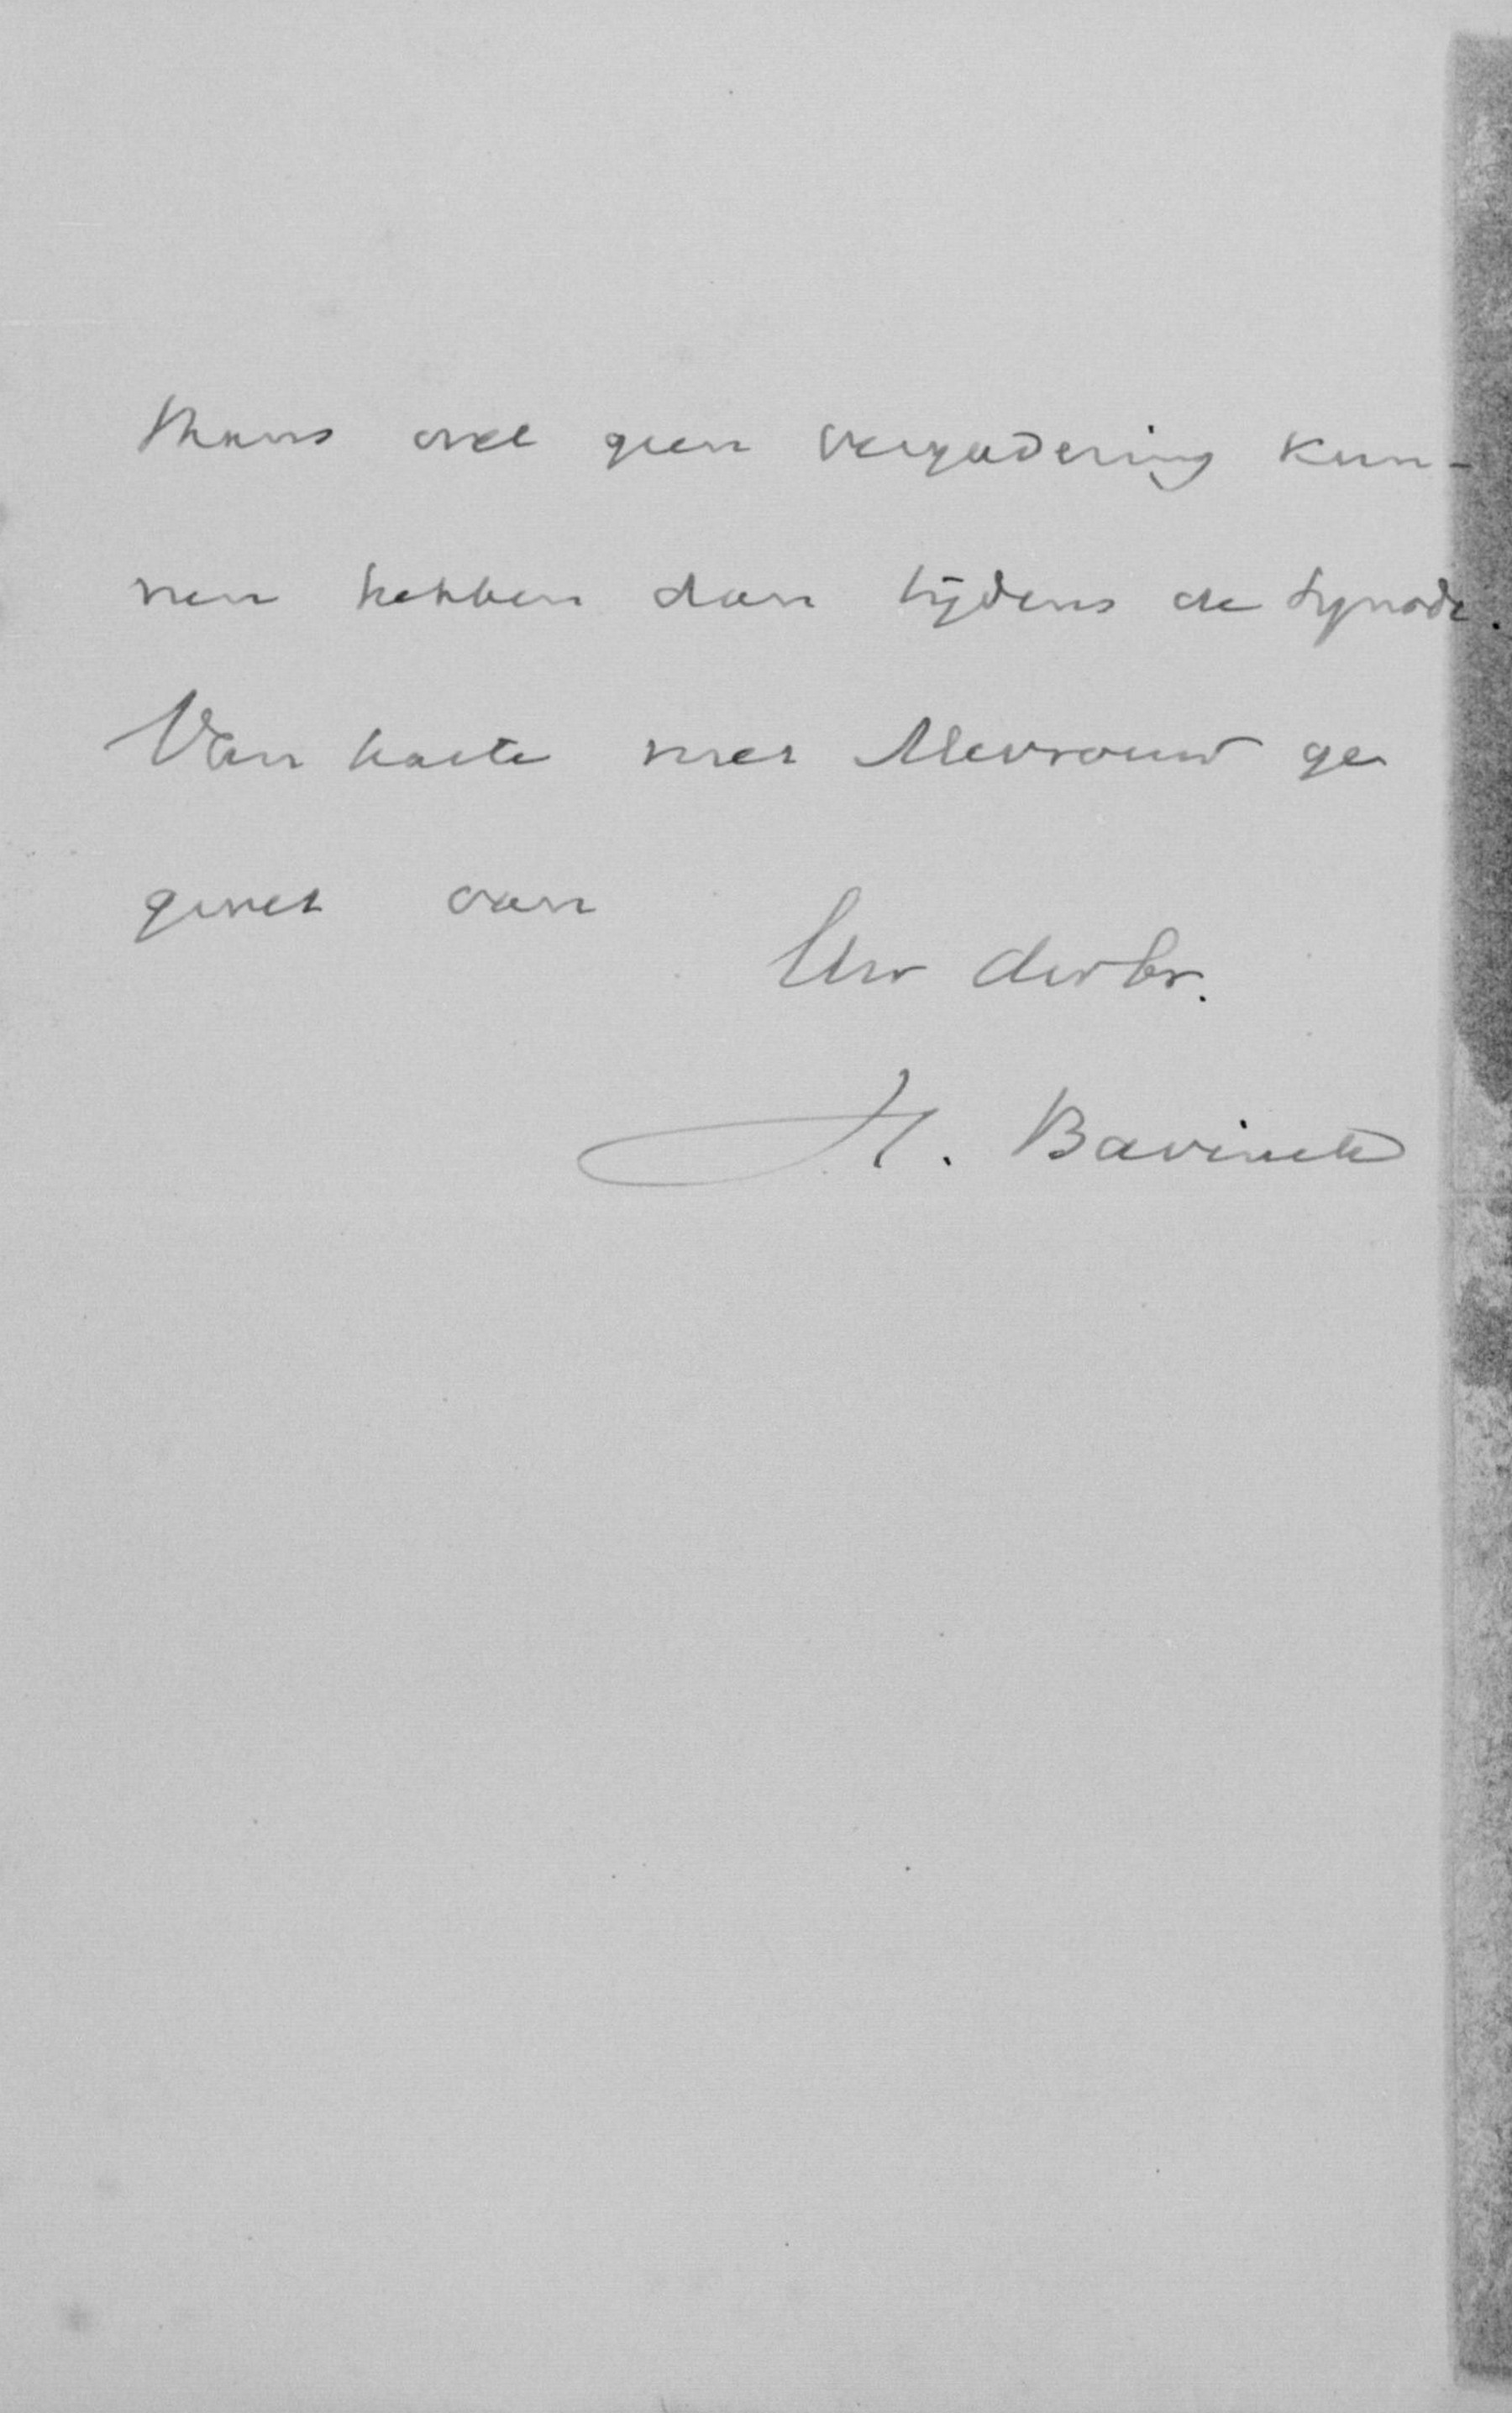 thans wel geen vergadering kun-
nen hebben dan tijdens de Synode.
Van harte met Mevrouw ge
groet van
Uw dw br.
H. Bavinck